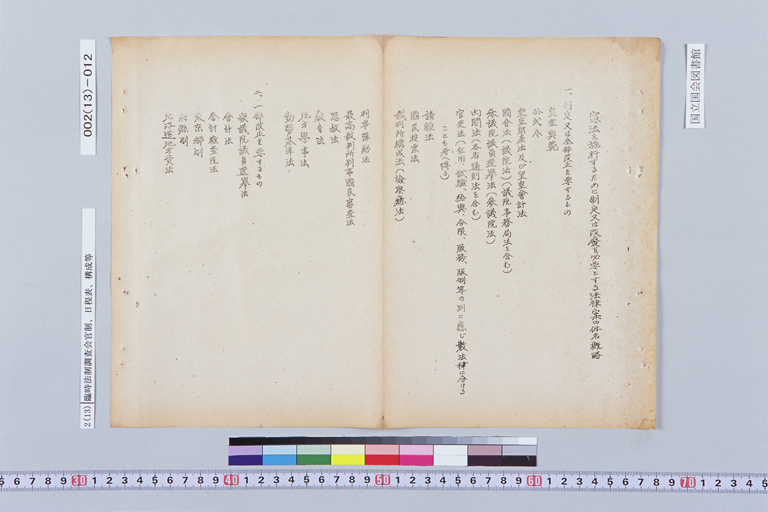 憲法を施行するために制定又は改廃を必要とする法律案の件名概略
一、制定又は全部改正を要するもの
皇室典範
公式令
皇室財産法及び皇室会計法
国会法(議院法)(議院事務局法を含む)
参議院議員選挙法(参議院法)
内閣法(各省通則法を含む)
官吏法(任用、試験、給与、分限、服務、服制等の別に応じ数法律に分けることも考へ得る)
請願法
国民投票法
裁判所構成法(検察庁法)
刑事弾劾法
最高裁判所判事国民審査法
恩赦法
教育法
地方学事法
労働基準法
二、一部改正を要するもの
衆議院議員選挙法
会計法
会計検査院法
東京都制
府県制
北海道地方費法
国立国会図書館
002(13)-012
2(13) 臨時法制調査会官制、日程表、構成等